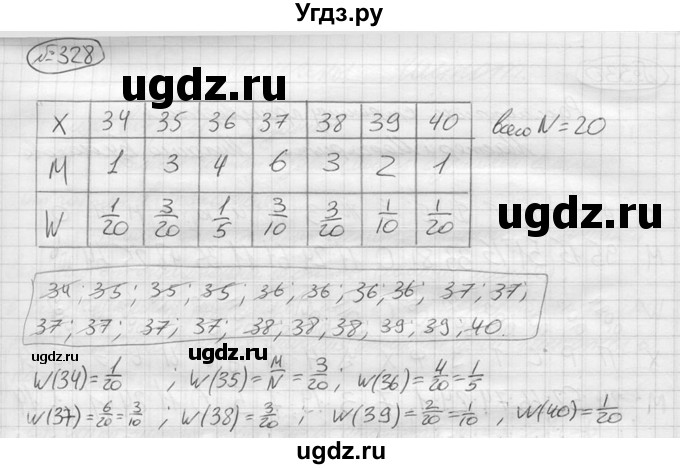 Угдз.ру
№328
ugdz.ru ugdz.ru
X 34 35 36 37 38 39 40 всего N=20
M 1 3 4 6 3 2 1
W 1/20 3/20 1/5 3/10 3/20 1/10 1/20
ugdz.ru ugdz.ru
34; 35; 35; 35; 36; 36; 36; 36; 37; 37;
37; 37; 37; 37; 38; 38; 38; 39; 39; 40.
ugdz.ru ugdz.ru
W(34)=1/20 ; W(35)=M/N=3/20; W(36)=4/20=1/5
W(37)=6/20=3/10 ; W(38)=3/20 ; W(39)=2/20=1/10 ; W(40)=1/20
ugdz.ru ugdz.ru